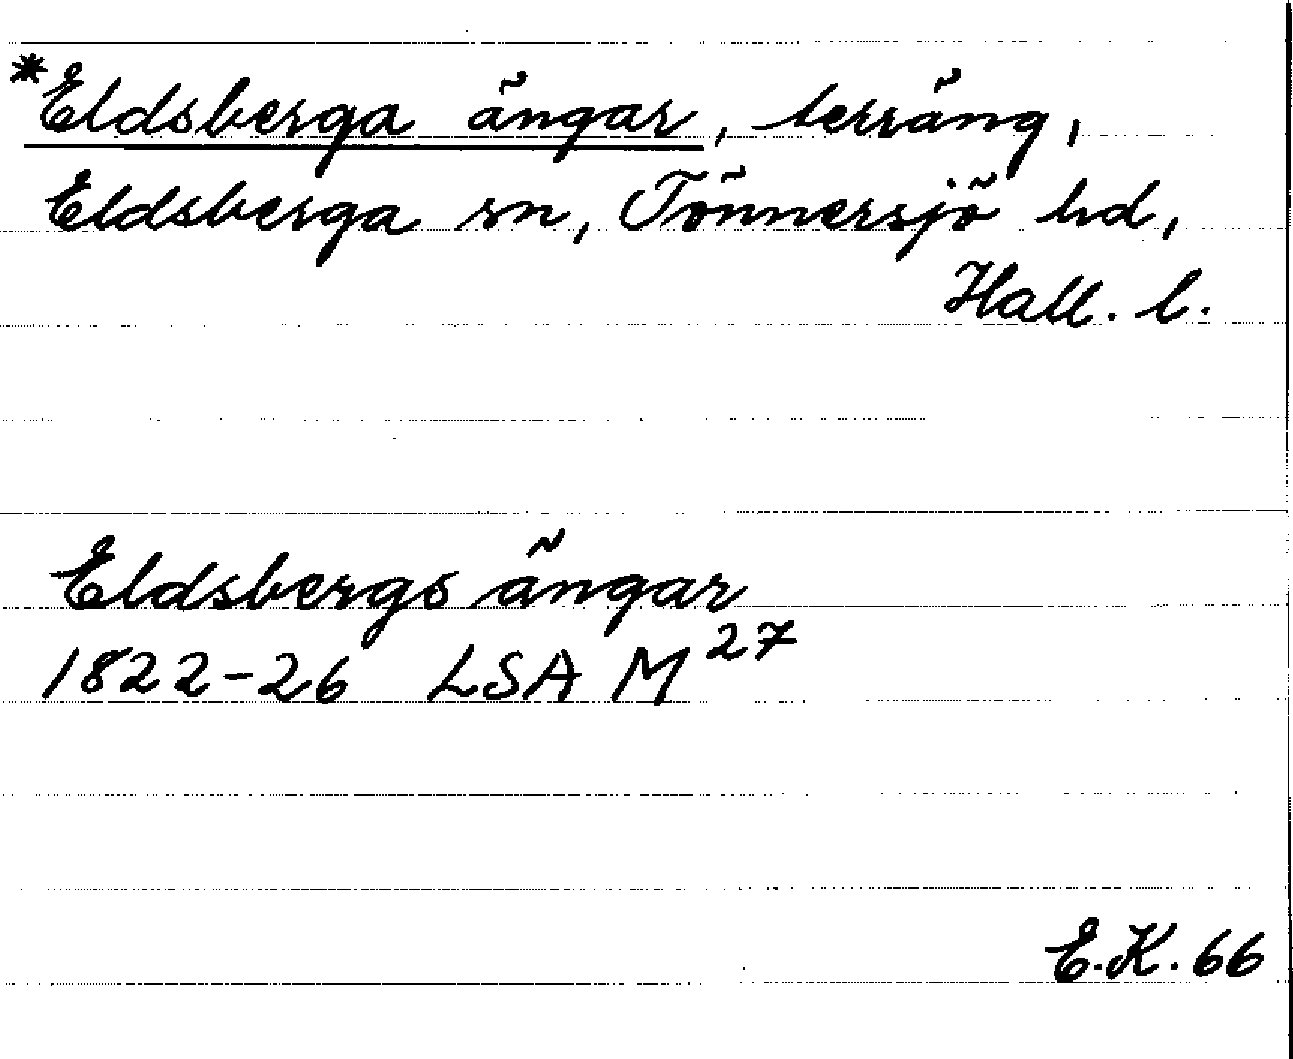 *Eldsberga ängar, terräng,
Eldsberga sn, Tönnersjö hd,
Hall. l.
Eldsbergs ängar
1822-26 LSA M 27
E.K. 66